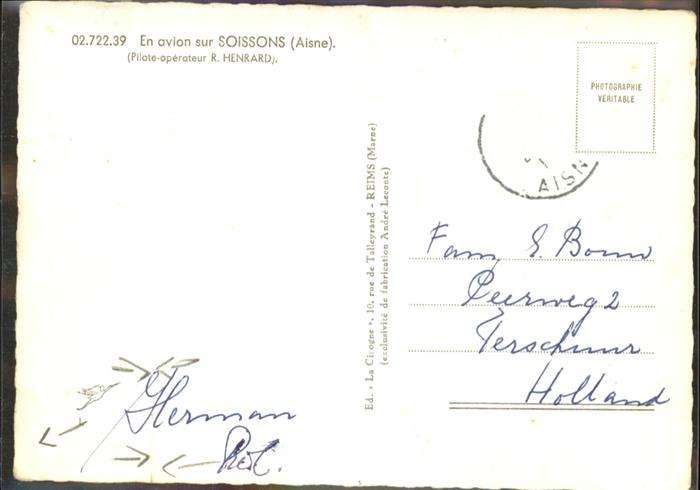 02.722.39 En avion sur SOISSONS (Aisne).
(Pilote-opérateur R. HENRARD).
PHOTOGRAPHIE
VÉRITABLE
AISN
Ed. "La Cigogne", 10, rue de Talleyrand - REIMS (Marne)
(exclusivité de fabrication André Leconte)
Fam. E.
Peerweg 2
Terschuur
Holland
Herman